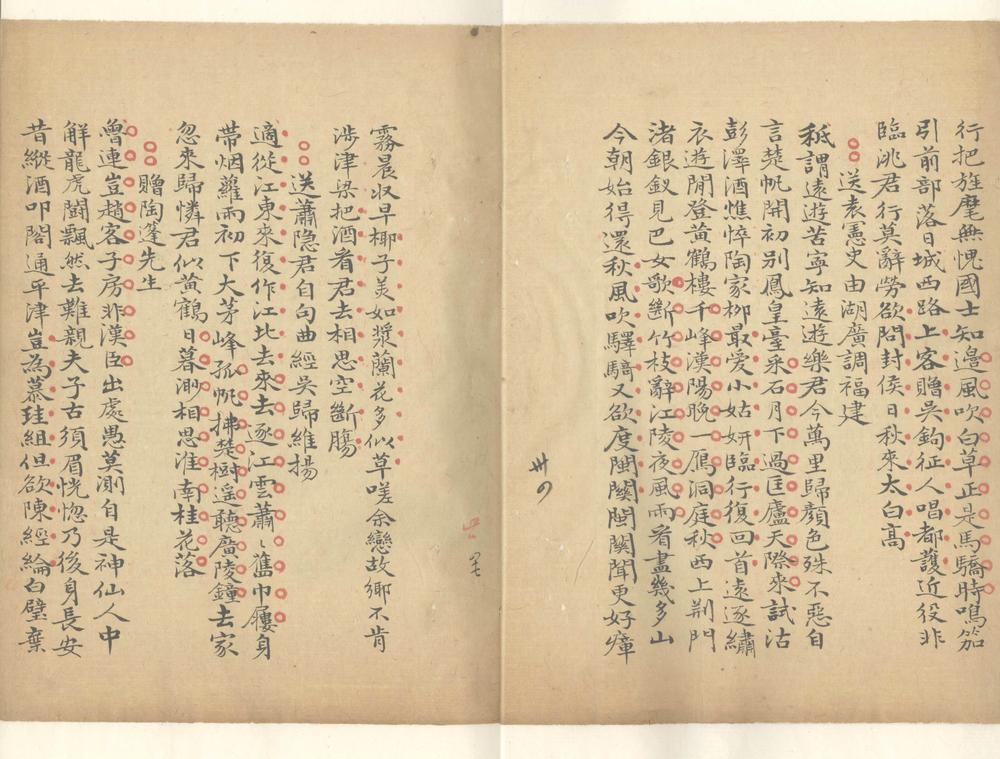 行把旌麾無愧國士知邊風吹白草正是馬驕時鳴笳
引前部落日城西路上客贈吳鉤征人唱都護近役非
臨洮君行莫辭勞欲問封侯日秋來太白高
送袁憲史由湖廣調福建
秖謂遠遊苦寧知遠遊樂君今萬里歸顏色殊不惡自
言楚帆開初别鳳皇臺采石月下過匡廬天際來試沽
彭澤酒憔悴陶家柳最愛小姑妍臨行復回首遠逐繡
衣遊閒登黃鶴樓千峰漢陽晚一鴈洞庭秋西上荆門
渚銀釵見巴女歌斷竹枝辭江陵夜風雨看盡幾多山
今朝始得還秋風吹驛騎又欲度閩關閩關聞更好瘴
卌の
霧晨收早椰子美如漿蘭花多似草嗟余戀故鄉不肯
涉津梁把酒看君去相思空斷腸
送蕭隐君自句曲經吳歸維揚
適從江東來復作江北去來去逐江雲蕭〻舊巾屨身
帶烟蘿雨初下大茅峰孤帆拂楚樹遥聽廣陵鐘去家
忽來歸憐君似黃鶴日暮渺相思淮南桂花落
贈陶蓬先生
魯連豈趙客子房非漢臣出處愚莫測自是神仙人中
觧龍虎鬪飄然去難親夫子古須眉恍惚乃後身長安
昔縱酒叩閤通平津豈為慕珪組但欲陳經綸白璧棄